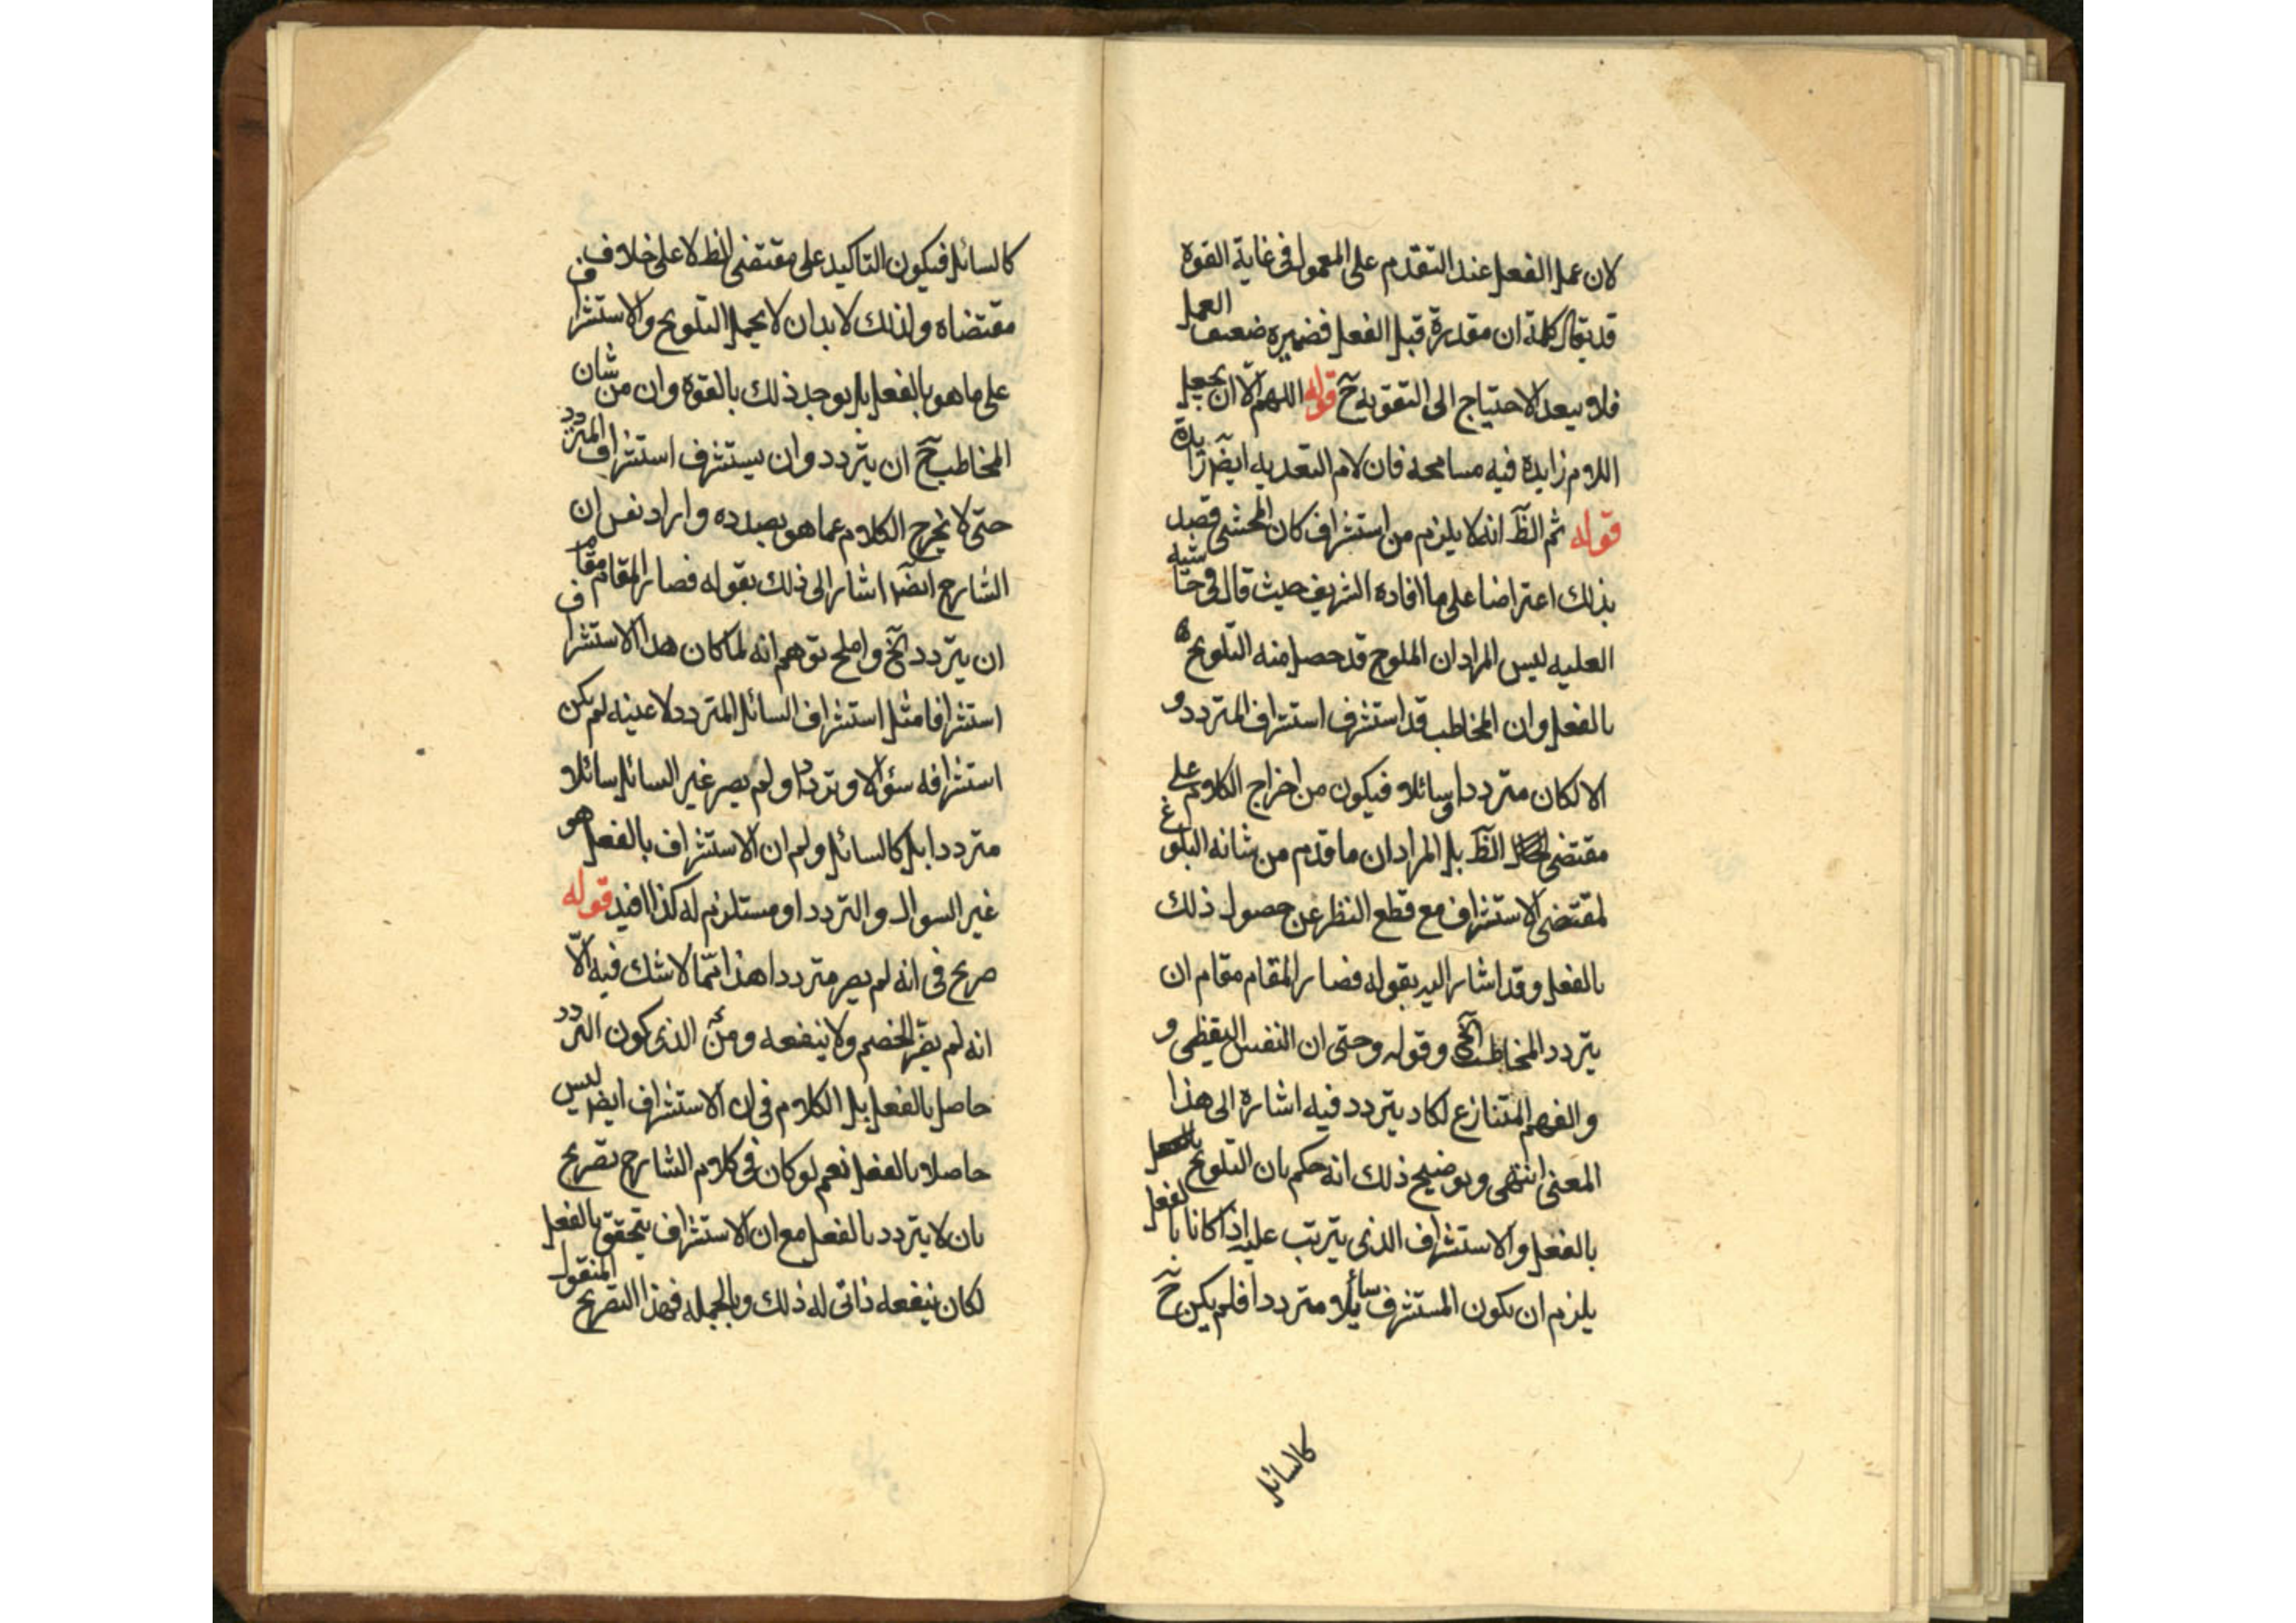 لان عمل الفعل عند التقدم على المعمول فى غاية القوة
قد يقال كلمة ان مقدرة قبل الفعل فضميره ضعيف العمل
فلا يبعد الاحتياج الى التقويه ح قوله اللهم الا ان يجعل
اللام زايدة فيه مسامحه فان لام التعديه ايضا زايدة
قوله ثم الظ انه لا يلزم من استشراف كان المحشى قصد
بذلك اعتراضا على ما افاده الشريف حيث قال فى حاشيته
العليه ليس المراد ان الملوح قد حصل منه التلويح
بالفعل وان المخاطب قد استشرف استشراف المتردد و
الا لكان مترددا وسائلا فيكون من اخراج الكلام على
مقتضى الظ بل المراد ان ما قدم من شانه البلوغ
لمقتضى الاستشراف مع قطع النظر عن حصول ذلك
بالفعل وقد اشار اليه بقوله فصار المقام مقام ان
يتردد المخاطب الخ وقوله وحتى ان النفس اليقظى و
والفهم المتنازع لكاد يتردد فيه اشارة الى هذا
المعنى انتهى وتوضيح ذلك انه حكم بان التلويح
بالفعل والاستشراف الذى يترتب عليه اذا كانا بالفعل
يلزم ان يكون المستشرف سائلا مترددا فلم يكن ح
كالسائل
كالسائل فيكون التاكيد على مقتضى الظ لا على خلاف
مقتضاه ولذلك لا بد ان لا يحمل التلويح والاستشراف
على ما هو بالفعل بل يوجد ذلك بالقوة وان من شان
المخاطب ح ان يتردد وان يستشرف استشراف المتردد
حتى لا يخرج الكلام عما هو بصدده واراد نفس ان
الشارح ايضا اشار الى ذلك بقوله فصار المقام مقام
ان يتردد الخ و توهم انه لما كان هذا الاستشراف
استشرافا مثل استشراف السائل المتردد لا عينه لم يكن
استشرافه سؤالا وترددا ولم يصر غير السائل سائلا و
مترددا بل كالسائل ولم ان الاستشراف بالفعل هو
غير السوال والتردد او مستلزم له كذا افيد قوله
صريح فى انه لم يصر مترددا هذا مما لا شك فيه الا
انه لم يضر الخصم ولا ينفعه ومن الذى كون التردد
حاصل بالفعل بل الكلام فى ان الاستشراف ايضا ليس
حاصلا بالفعل نعم لو كان فى كلام الشارح تصريح
بان لا يتردد بالفعل مع ان الاستشراف يتحقق بالفعل
لكان ينفعه ذاتى له ذلك وبالجمله فهذا التصريح المنقول